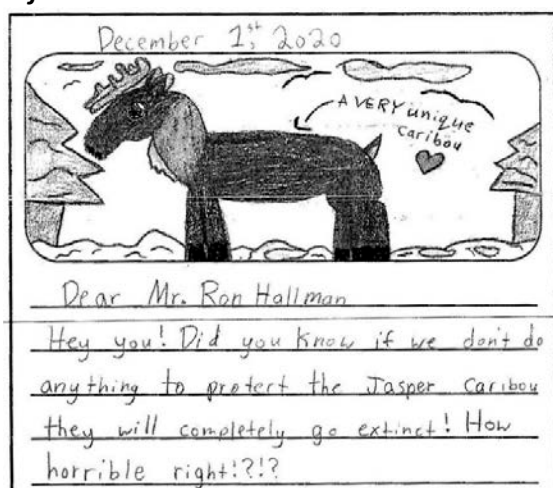 December 1st, 2020
A VERY unique
caribou
Dear Mr. Ron Hallman
Hey you! Did you know if we don't do
anything to protect the Jasper Caribou
they will completely go extinct! How
horrible right!?!?